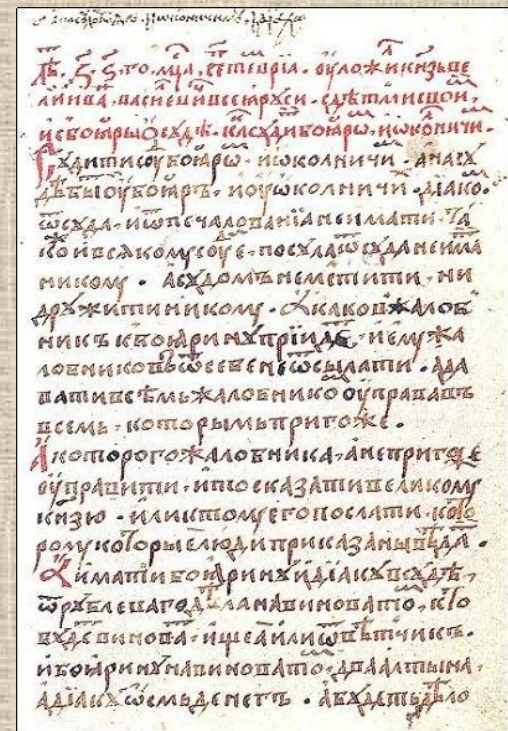 лѣ. ҂з҃. ѕ҃. го. мц҃а. септеврїа. оуложи кнѧзь ве
ликіи ива васиевичь всеꙗ руси. с дѣтми своими,
и с боꙗры ѡ судѣ. ка судити боꙗрѡ. и ѡколничи.
Судити су боꙗрѡ. и ѡколничи. а на су
дѣ быти оу боꙗръ. и оу ѡколничи. діако.
ѿ суда. и ѿ печалованїа не имати. та
ко и всѧкому суе. посула ѿ суда не има
никому. а судомъ не мстити. ни
дружити никому. а каков жалоб
никъ к боꙗрину прїиде. и ему жа
лобниковъ ѿ себе не ѿсылати. а да
вати всѣмь жалобнико оуправа въ
всемь. которымь пригоже.
А которого жалобника. а не пригоже
оуправити. и то сказати великому
кнѧзю. или к тому его послати. кото
рому которые люди приказаны вѣда.
А имати боꙗрину и діаку в судѣ,
ѿ рублеваго дѣла на виновато. кто
буде винова. ищеа или ѿвѣтчикъ.
и боꙗрину на виновато. два алтына.
а діаку ѡсмь денегъ. а будеть дѣло